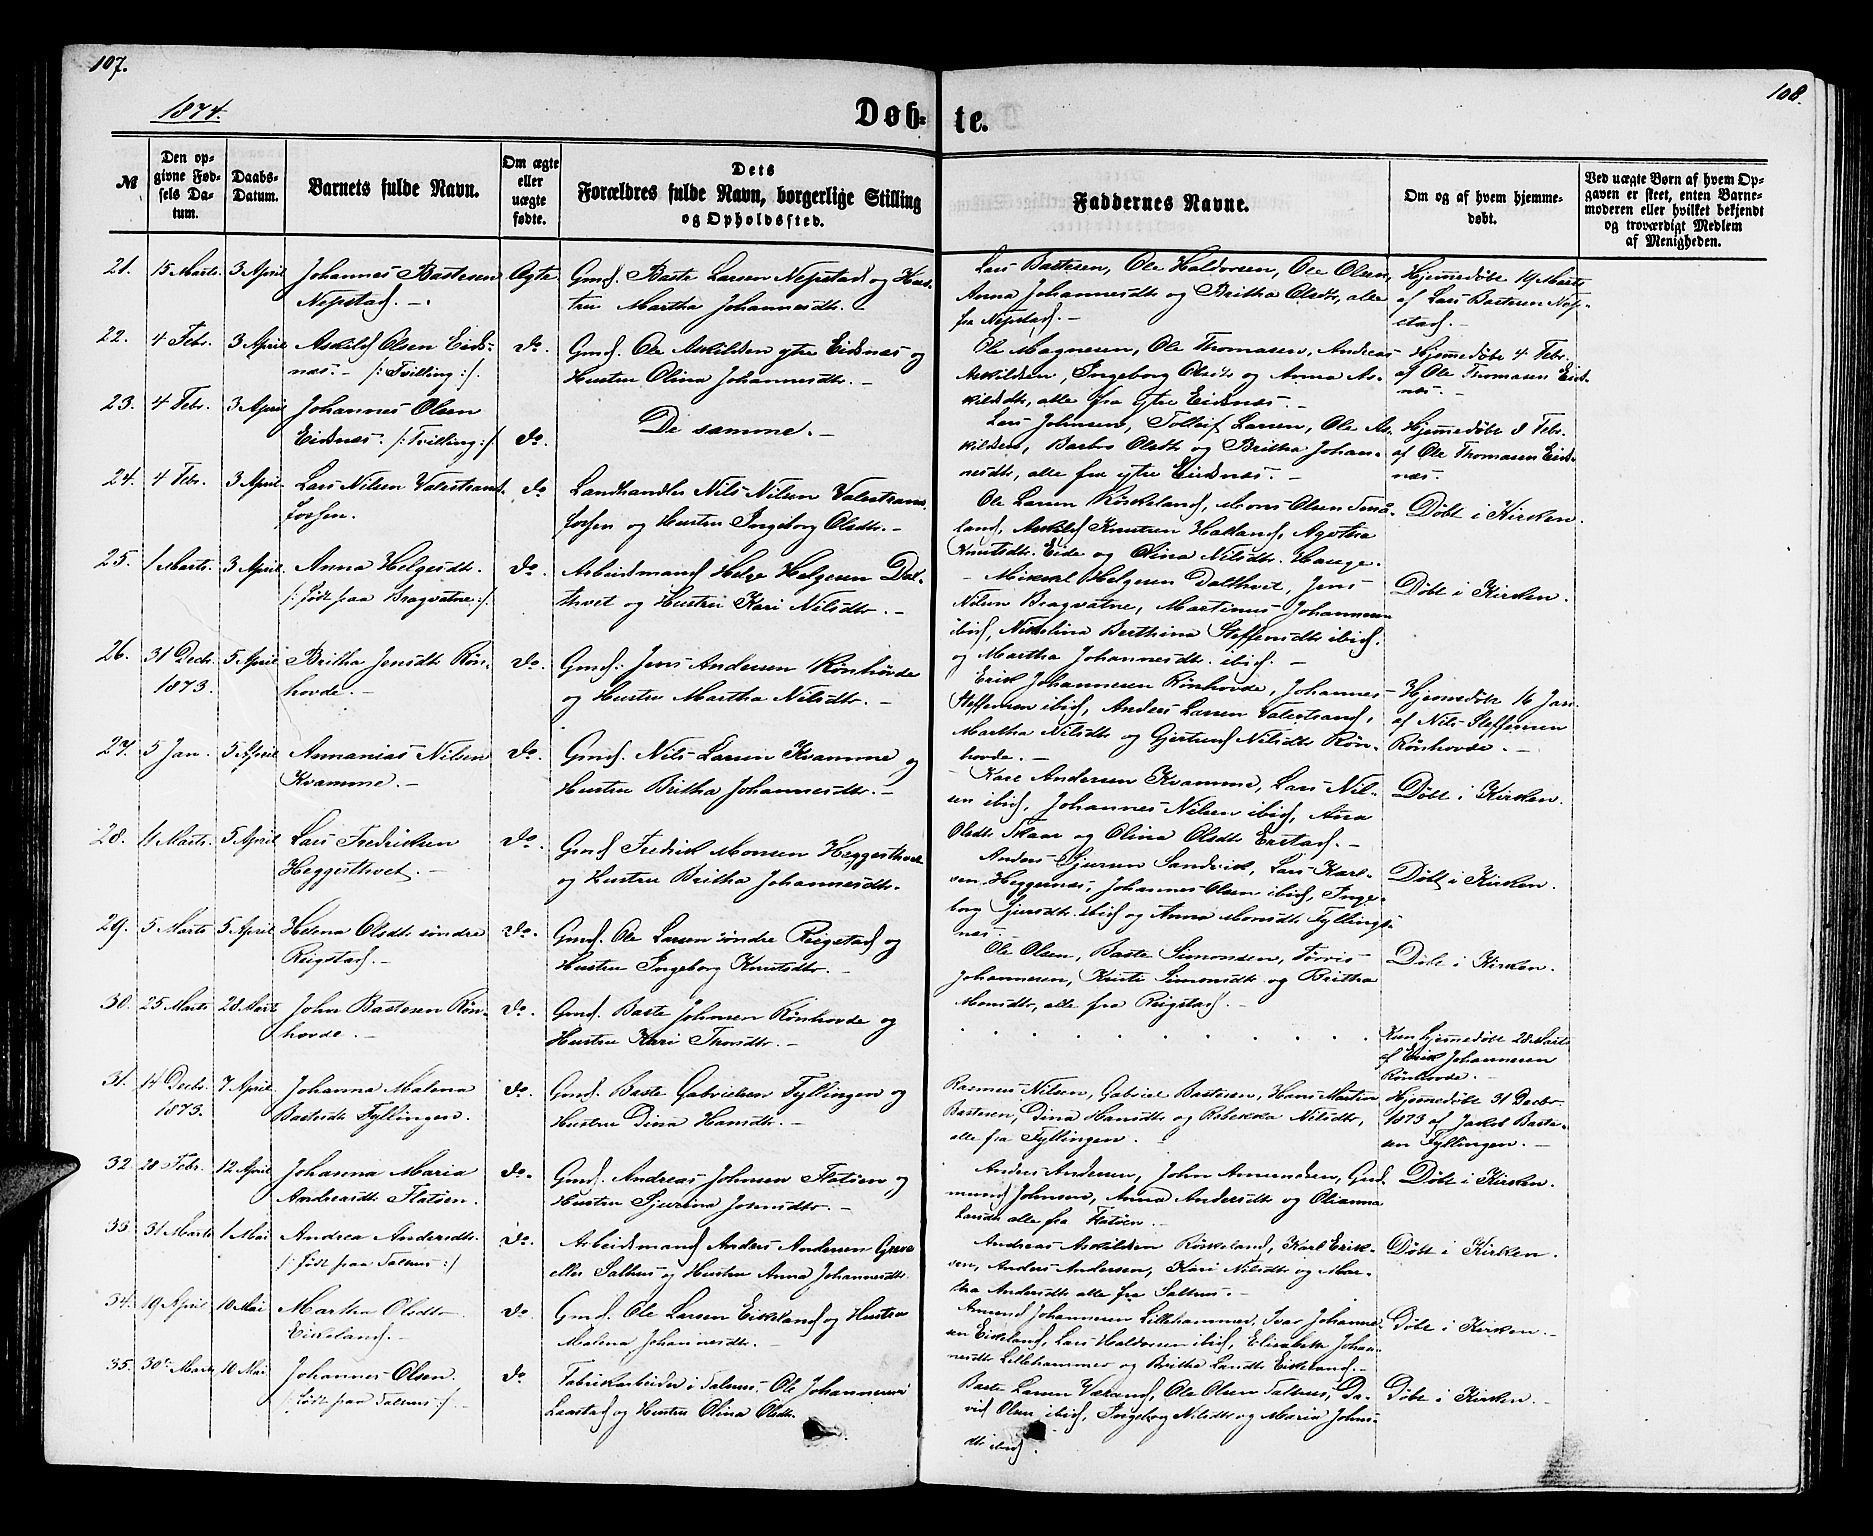 107.
108.
1874.
Døb-
te.
№
Den op-
givne Fød-
sels Da-
tum.
Daabs-
Datum.
Barnets fulde Navn.
Om ægte
eller
uægte
fødte.
Dets
Forældres fulde Navn, borgerlige Stilling
og Opholdssted.
Faddernes Navne.
Om og af hvem hjemme-
døbt.
Ved uægte Børn af hvem Op-
gaven er skeet, enten Barne-
moderen eller hvilket bekjendt
og troværdigt Medlem
af Menigheden.
21. 15 Marts 3 April Johannes Bastesen Ægte Gmd. Baste Larsen Nepstad og Hus-
Nepstad. — tru Martha Johannesdtr. —
Lars Bastesen, Ole Haldorsen, Ole Olsen,
Anna Johannesdtr og Britha Olsdtr, alle
fra Nepstad. —
Hjemmedøbt 19 Marts
af Lars Bastesen Nep-
stad. —
22. 4 Febr. 3 April Askild Olsen Eids- do. Gmd. Ole Askildsen ytre Eidsnæs og
næs. — /: Tvilling :/. Hustru Olina Johannesdtr. —
Ole Magnesen, Ole Thomasen, Andreas
Askildsen, Ingeborg Olsdtr og Anna As-
kildsdtr, alle fra ytre Eidsnæs. —
Hjemmedøbt 4 Febr.
af Ole Thomasen Eids-
næs. —
23. 4 Febr. 3 April Johannes Olsen
Eidsnæs. /: Tvilling :/. do. De samme. —
Lars Johnsen, Tolleif Larsen, Ole As-
kildsen, Barbro Olsdtr og Britha Johan-
nesdtr, alle fra ytre Eidsnæs. —
Hjemmedøbt 8 Febr.
af Ole Thomasen Eids-
næs. —
24. 4 Febr. 3 April Lars Nilsen Valestrand- do Landhandler Nils Nilsen Valestrand-
fossen. fossen og Hustru Ingeborg Olsdtr. —
Ole Larsen Röskeland, Mons Olsen Små-
land, Askild Knutsen Hatland, Agotha
Knutsdtr. Eide og Olina Nilsdtr. Hauge. —
Döbt i Kirken.
25. 1 Marts. 3 April. Anna Helgesdtr. do. Arbeidsmand Helge Helgesen Dal-
/: født paa Bragvatne :/. thvet og Hustru Kari Nilsdtr. —
Mikkel Helgesen Dalthvet, Jens
Nilsen Bragvatne, Martinus Johannesen
ibid, Nikolina Berthina Steffensdtr ibid.
og Martha Johannesdtr. ibid. —
Döbt i Kirken.
26. 31 Decbr. 5 April Britha Jensdtr Rön- do. Gmd. Jens Andersen Rönhövde
1873. hovde. — og Hustru Martha Nilsdtr. —
Erik Johannesen Rönhovde, Johannes
Steffensen ibid, Anders Larsen Valestrand,
Martha Nilsdtr og Gjertrud Nilsdtr Rön-
hovde. —
Hjemmedöbt 16 Jan.
af Nils Steffensen
Rönhovde. —
27. 5 Jan. 5 April Annanias Nilsen do. Gmd. Nils Larsen Kvamme og
Kvamme. — Hustru Britha Johannesdtr. —
Karl Andersen Kvamme, Lars Nil-
sen ibid, Johannes Nilsen ibid, Ana
Olsdtr Skaar og Olina Olsdtr Erstad. —
Döbt i Kirken.
28. 4 Marts. 5 April Lars Fredriksen do. Gmd Fredrik Monsen Heggesthvet
Heggesthvet. — og Hustru Britha Johannesdtr.
Anders Sjursen Sandvik, Lars Karl-
sen Heggernæs, Johannes Olsen ibid, Inge-
borg Sjursdtr. ibid og Anna Monsdtr Fyllings-
næs. —
Döbt i Kirken.
29. 5 Marts 5 April Helena Olsdtr söndre do. Gmd. Ole Larsen söndre Reigstad og
Reigstad. — Hustru Ingeborg Knutsdtr. —
Ole Olsen, Baste Simonsen, Torris
Johannesen, Kristi Simonsdtr og Britha
Monsdtr, alle fra Reigstad. —
Döbt i Kirken.
30. 25 Marts 28 Marts John Bastesen Rön- do. Gmd. Baste Johnsen Rönhovde og
hovde. — Hustru Kari Thorsdtr. —
Kun hjemmedöbt 28 Marts
af Erik Johannesen
Rönhovde. —
31. 14 Decbr. 7 April Johanna Malena do. Gmd. Baste Gabrielsen Fyllingen og
1873. Bastesdtr Fyllingen. Hustru Dina Hansdtr. —
Rasmus Nilsen, Gabriel Bastesen, Hans Martin
Bastesen, Dina Hansdtr og Rebekka Nilsdtr,
alle fra Fyllingen. —
Hjemmedöbt 31 Decbr.
1873 af Jakob Baste-
sen Fyllingen. —
32. 28 Febr. 12 April Johanna Maria do. Gmd. Andreas Johnsen Flatöen og
Andreasdtr Flatöen. Hustru Sjurina Johnsdtr. —
Anders Andersen, John Amundsen, Gud-
mund Johnson, Anna Andersdtr og Olianna
Larsdtr alle fra Flatöen. —
Döbt i Kirken.
33 31 Marts 1 Mai Andrea Andersdtr. do. Arbeidsmand Anders Andersen Greve
/: födt paa Salhus :/ eller Salhus og Hustru Anna Johannesdtr.
Andreas Askildsen Röskeland, Karl Erik-
sen, Anders Andersen, Kari Nilsdtr og Mar-
tha Andersdtr alle fra Salhus. —
Döbt i Kirken.
34. 19 April 10 Mai Martha Olsdtr do. Gmd. Ole Larsen Eikeland og Hustru
Eikeland. — Malena Johannesdtr. —
Amund Johannesen Lillehammer, Ivar Johanne-
sen Eikeland, Lars Haldorsen ibid, Elisabeth Johan-
nesdtr Lillehammer og Britha Larsdtr Eikeland. —
Döbt i Kirken. —
35. 30 Marts 10 Mai Johannes Olsen. do Fabrikarbeider i Salhus, Ole Johannesen
/: födt paa Salhus :/ — Laastad og Hustru Olina Olsdtr.
Baste Larsen Væraas, Ole Olsen Salhus, Da-
vid Olsen ibid, Ingeborg Nilsdtr og Maria Johns-
dtr ibid.
Döbt i Kirken. —